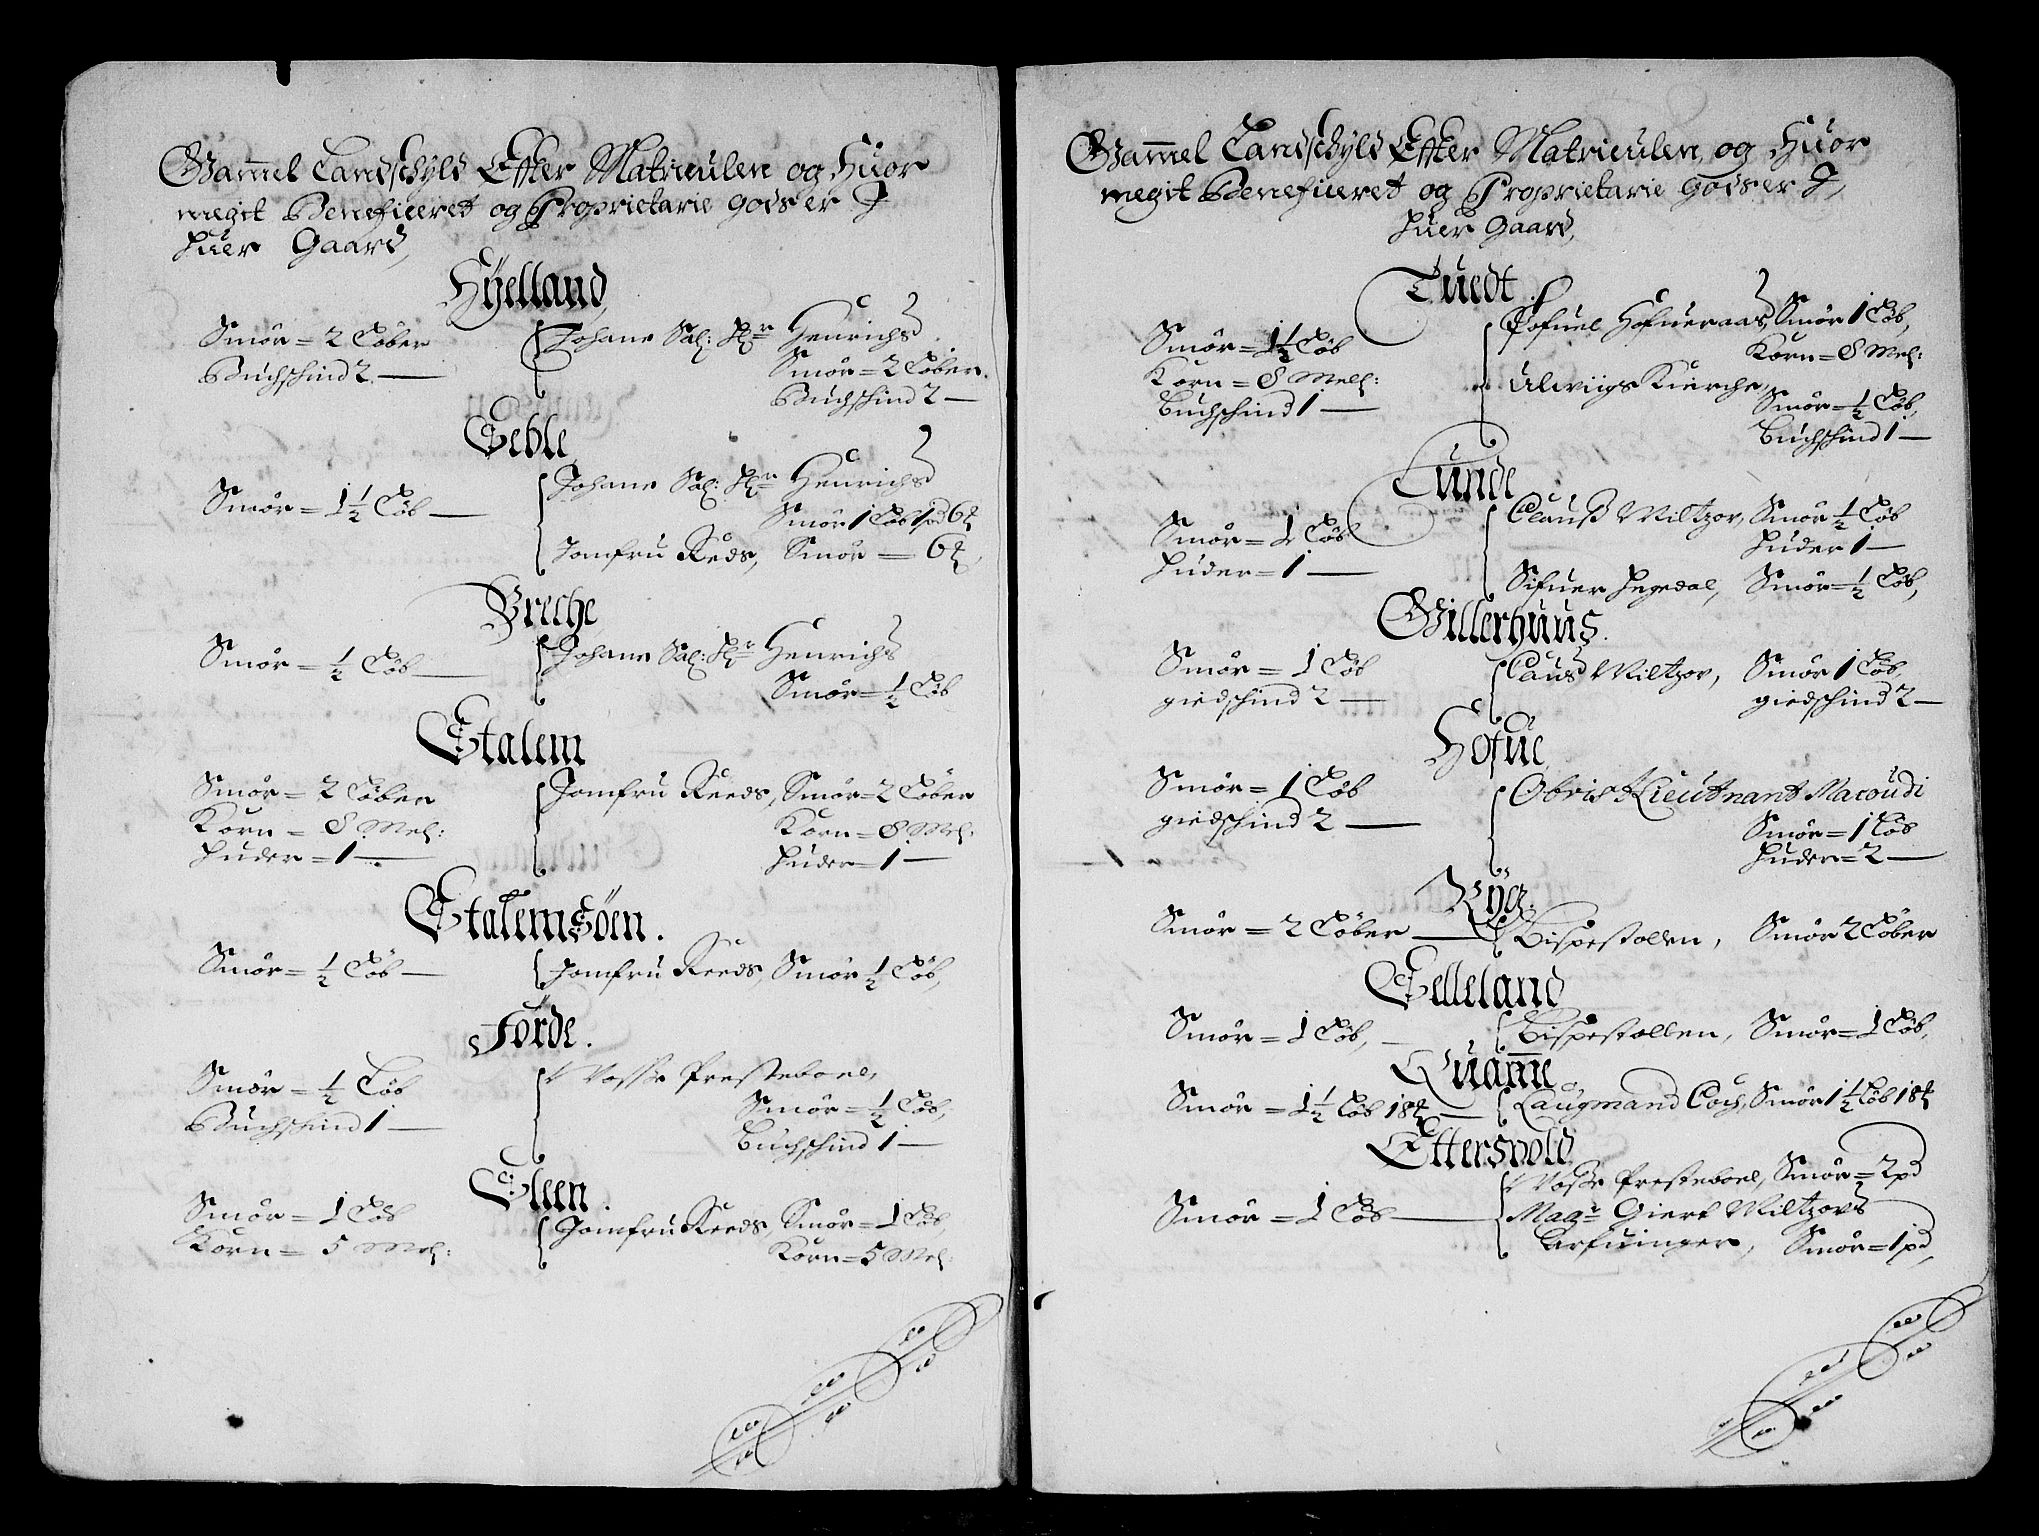 Gammel Landschyld Effter Matriculen og Huor
megit Beneficeret og Proprietarie godser I
huer Gaard,
Hÿelland,
Smör = 2 Löber
Buchschind 2 —
Johann Sal: Hr Henrichs
Smör = 2 Löber.
Buchschind 2 —
Seble
Smör = 1½ Löb —
Johann Sal: Hr Henrichs
Smör 1 Löb 1 pd 6
Jomfru Reds, Smör = 6
Breche
Smör = ½ Löb —
Johann Sal: Hr Henrichs
Smör = ½ Löb
Stalem
Smör = 2 Löber
Korn = 8 Mel:
huder = 1 —
Jomfru Reeds, Smör = 2 Löber
Korn = 8 Mel:
huder = 1 —
Stalemsöen.
Smör = ½ Löb —
Jomfru Reeds, Smör ½ Löb,
Förde.
Smör = ½ Löb
Buchschind 1 —
Vosse Presteboel,
Smör = ½ Löb,
Buchschind 1 —
Eleen.
Smör = 1 Löb
Korn = 5 Mel:
Jomfru Reeds, Smör = 1 Löb,
Korn = 5 Mel:
Gammel Landschyld Effter Matriculen, og Huor
megit Beneficeret og Proprietarie godser I,
huer Gaard,
Tuedt.
Smör = 1½ Löb
Korn = 8 Mell:
Buchschind 1 —
Pofuel Hofueraas, Smör 1 Löb,
Korn = 8 Mel:
Ulwiigs Kierche,
Smör = ½ Löb,
Buchschind 1 —
Lunde
Smör = 1 Löb
huder = 1 —
Clauss Miltzov, Smör ½ Löb
huder 1 —
Sifuer Hegedal, Smör = ½ Löb,
Gillerhuus.
Smör = 1 Löb
giedschind 2 —
Claus Miltzov, Smör 1 Löb,
giedschind 2 —
Hofue,
Smör = 1 Löb
giedschind 2 —
Obrist Lieutnant Macoudi
Smör = 1 Löb
huder = 2 —
Rÿg.
Smör = 2 Löber —
Bispestollen, Smör 2 Löber
Selleland
Smör = 1 Löb, —
Bispestollen, Smör = 1 Löb,
Quamme
Smör = 1½ Löb 18 —
Laugmand Coch, Smör 1½ Löb 18
Effterswold
Smör = 1 Löb —
Vosse Presteboel, Smör = 2 pd
Magr Giert Miltzovs
Arfuinger, Smör = 1 pd,